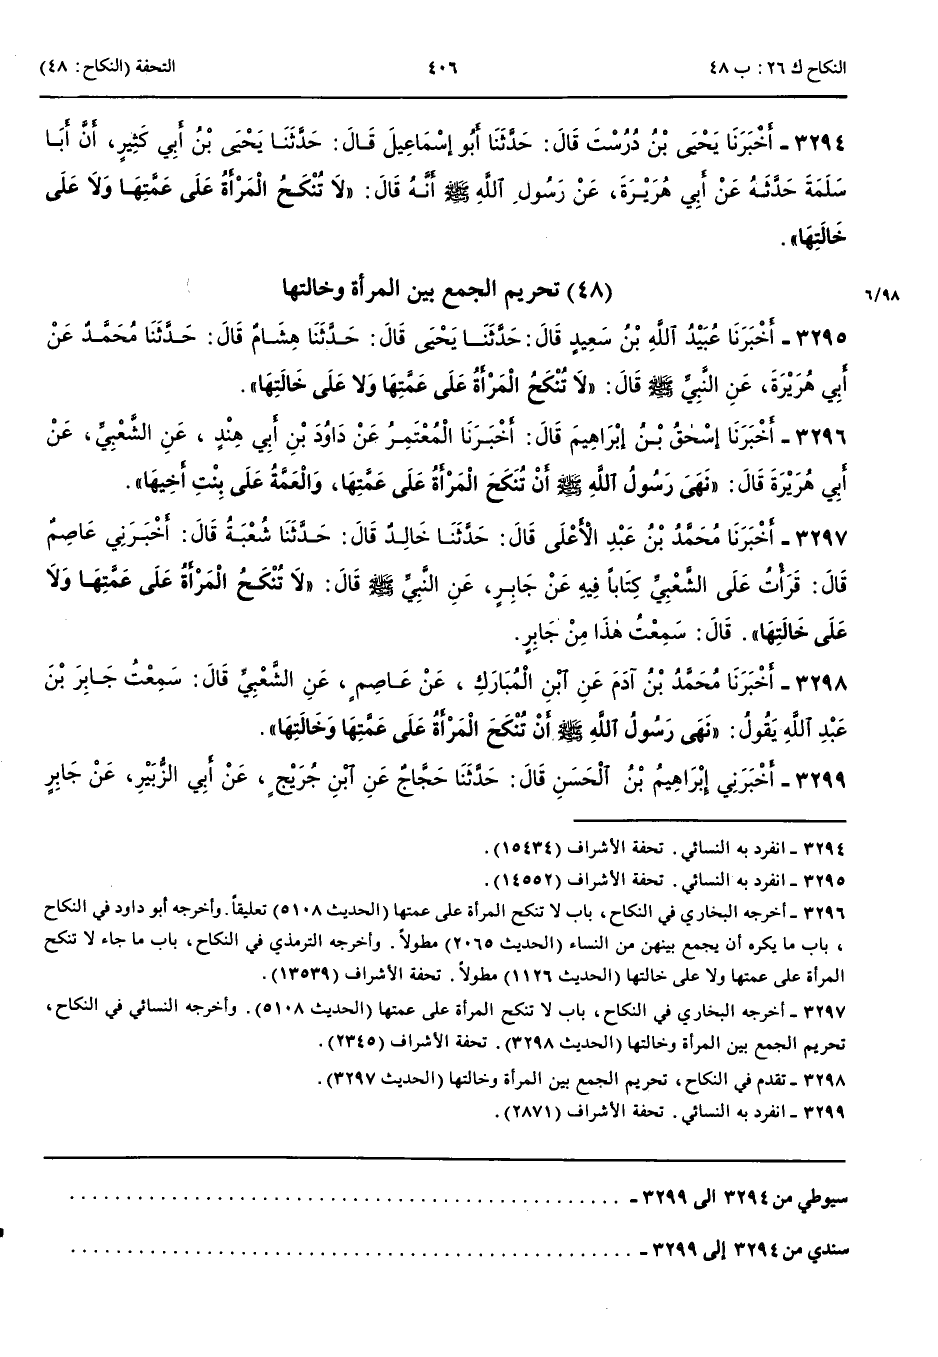 النكاح ك ٢٦: ب ٤٨
٤٠٦
التحفة (النكاح: ٤٨)
٣٢٩٤ ـ أَخْبَرَنَا يَحْيَى بْنُ دُرُسْتَ قَالَ: حَدَّثَنَا أَبُو إِسْمَاعِيلَ قَالَ: حَدَّثَنَا يَحْيَى بْنُ أَبِي كَثِيرٍ، أَنَّ أَبَا
سَلَمَةَ حَدَّثَهُ عَنْ أَبِي هُرَيْرَةَ، عَنْ رَسُولِ ٱللَّهِ ﷺ أَنَّهُ قَالَ: «لَا تُنْكَحُ الْمَرْأَةُ عَلَى عَمَّتِهَا وَلَا عَلَى
خَالَتِهَا».
(٤٨) تحريم الجمع بين المرأة وخالتها
٦/٩٨
٣٢٩٥ ـ أَخْبَرَنَا عُبَيْدُ ٱللَّهِ بْنُ سَعِيدٍ قَالَ: حَدَّثَنَا يَحْيَى قَالَ: حَدَّثَنَا هِشَامٌ قَالَ: حَدَّثَنَا مُحَمَّدٌ عَنْ
أَبِي هُرَيْرَةَ، عَنِ النَّبِيِّ ﷺ قَالَ: «لَا تُنْكَحُ الْمَرْأَةُ عَلَى عَمَّتِهَا وَلا عَلَى خَالَتِهَا».
٣٢٩٦ ـ أَخْبَرَنَا إِسْحٰقُ بْنُ إِبْرَاهِيمَ قَالَ: أَخْبَرَنَا الْمُعْتَمِرُ عَنْ دَاوُدَ بْنِ أَبِي هِنْدٍ ، عَنِ الشَّعْبِيِّ، عَنْ
أَبِي هُرَيْرَةَ قَالَ: «نَهَى رَسُولُ ٱللَّهِ ﷺ أَنْ تُنْكَحَ الْمَرْأَةُ عَلَى عَمَّتِهَا، وَالْعَمَّةُ عَلَى بِنْتِ أَخِيهَا».
٣٢٩٧ ـ أَخْبَرَنَا مُحَمَّدُ بْنُ عَبْدِ الْأَعْلَى قَالَ: حَدَّثَنَا خَالِدٌ قَالَ: حَدَّثَنَا شُعْبَةُ قَالَ: أَخْبَرَنِي عَاصِمٌ
قَالَ: قَرَأْتُ عَلَى الشَّعْبِيِّ كِتَاباً فِيهِ عَنْ جَابِرٍ، عَنِ النَّبِيِّ ﷺ قَالَ: «لَا تُنْكَحُ الْمَرْأَةُ عَلَى عَمَّتِهَا وَلَا
عَلَى خَالَتِهَا». قَالَ: سَمِعْتُ هٰذَا مِنْ جَابِرٍ.
٣٢٩٨ ـ أَخْبَرَنَا مُحَمَّدُ بْنُ آدَمَ عَنِ ٱبْنِ الْمُبَارَكِ ، عَنْ عَاصِمٍ ، عَنِ الشَّعْبِيِّ قَالَ: سَمِعْتُ جَابِرَ بْنَ
عَبْدِ ٱللَّهِ يَقُولُ: «نَهَى رَسُولُ ٱللَّهِ ﷺ أَنْ تُنْكَحَ الْمَرْأَةُ عَلَى عَمَّتِهَا وَخَالَتِهَا».
٣٢٩٩ ـ أَخْبَرَنِي إِبْرَاهِيمُ بْنُ الْحَسَنِ قَالَ: حَدَّثَنَا حَجَّاجٌ عَنِ ٱبْنِ جُرَيْجٍ ، عَنْ أَبِي الزُّبَيْرِ، عَنْ جَابِرٍ
٣٢٩٤ ـ انفرد به النسائي. تحفة الأشراف (١٥٤٣٤).
٣٢٩٥ ـ انفرد به النسائي. تحفة الأشراف (١٤٥٥٢).
٣٢٩٦ ـ أخرجه البخاري في النكاح، باب لا تنكح المرأة على عمتها (الحديث ٥١٠٨) تعليقاً. وأخرجه أبو داود في النكاح
، باب ما يكره أن يجمع بينهن من النساء (الحديث ٢٠٦٥) مطولاً. وأخرجه الترمذي في النكاح، باب ما جاء لا تنكح
المرأة على عمتها ولا على خالتها (الحديث ١١٢٦) مطولاً. تحفة الأشراف (١٣٥٣٩).
٣٢٩٧ ـ أخرجه البخاري في النكاح، باب لا تنكح المرأة على عمتها (الحديث ٥١٠٨). وأخرجه النسائي في النكاح،
تحريم الجمع بين المرأة وخالتها (الحديث ٣٢٩٨). تحفة الأشراف (٢٣٤٥).
٣٢٩٨ ـ تقدم في النكاح، تحريم الجمع بين المرأة وخالتها (الحديث ٣٢٩٧).
٣٢٩٩ ـ انفرد به النسائي. تحفة الأشراف (٢٨٧١).
سيوطي من ٣٢٩٤ الى ٣٢٩٩ ـ ..................................................
سندي من ٣٢٩٤ إلى ٣٢٩٩ ـ ..................................................